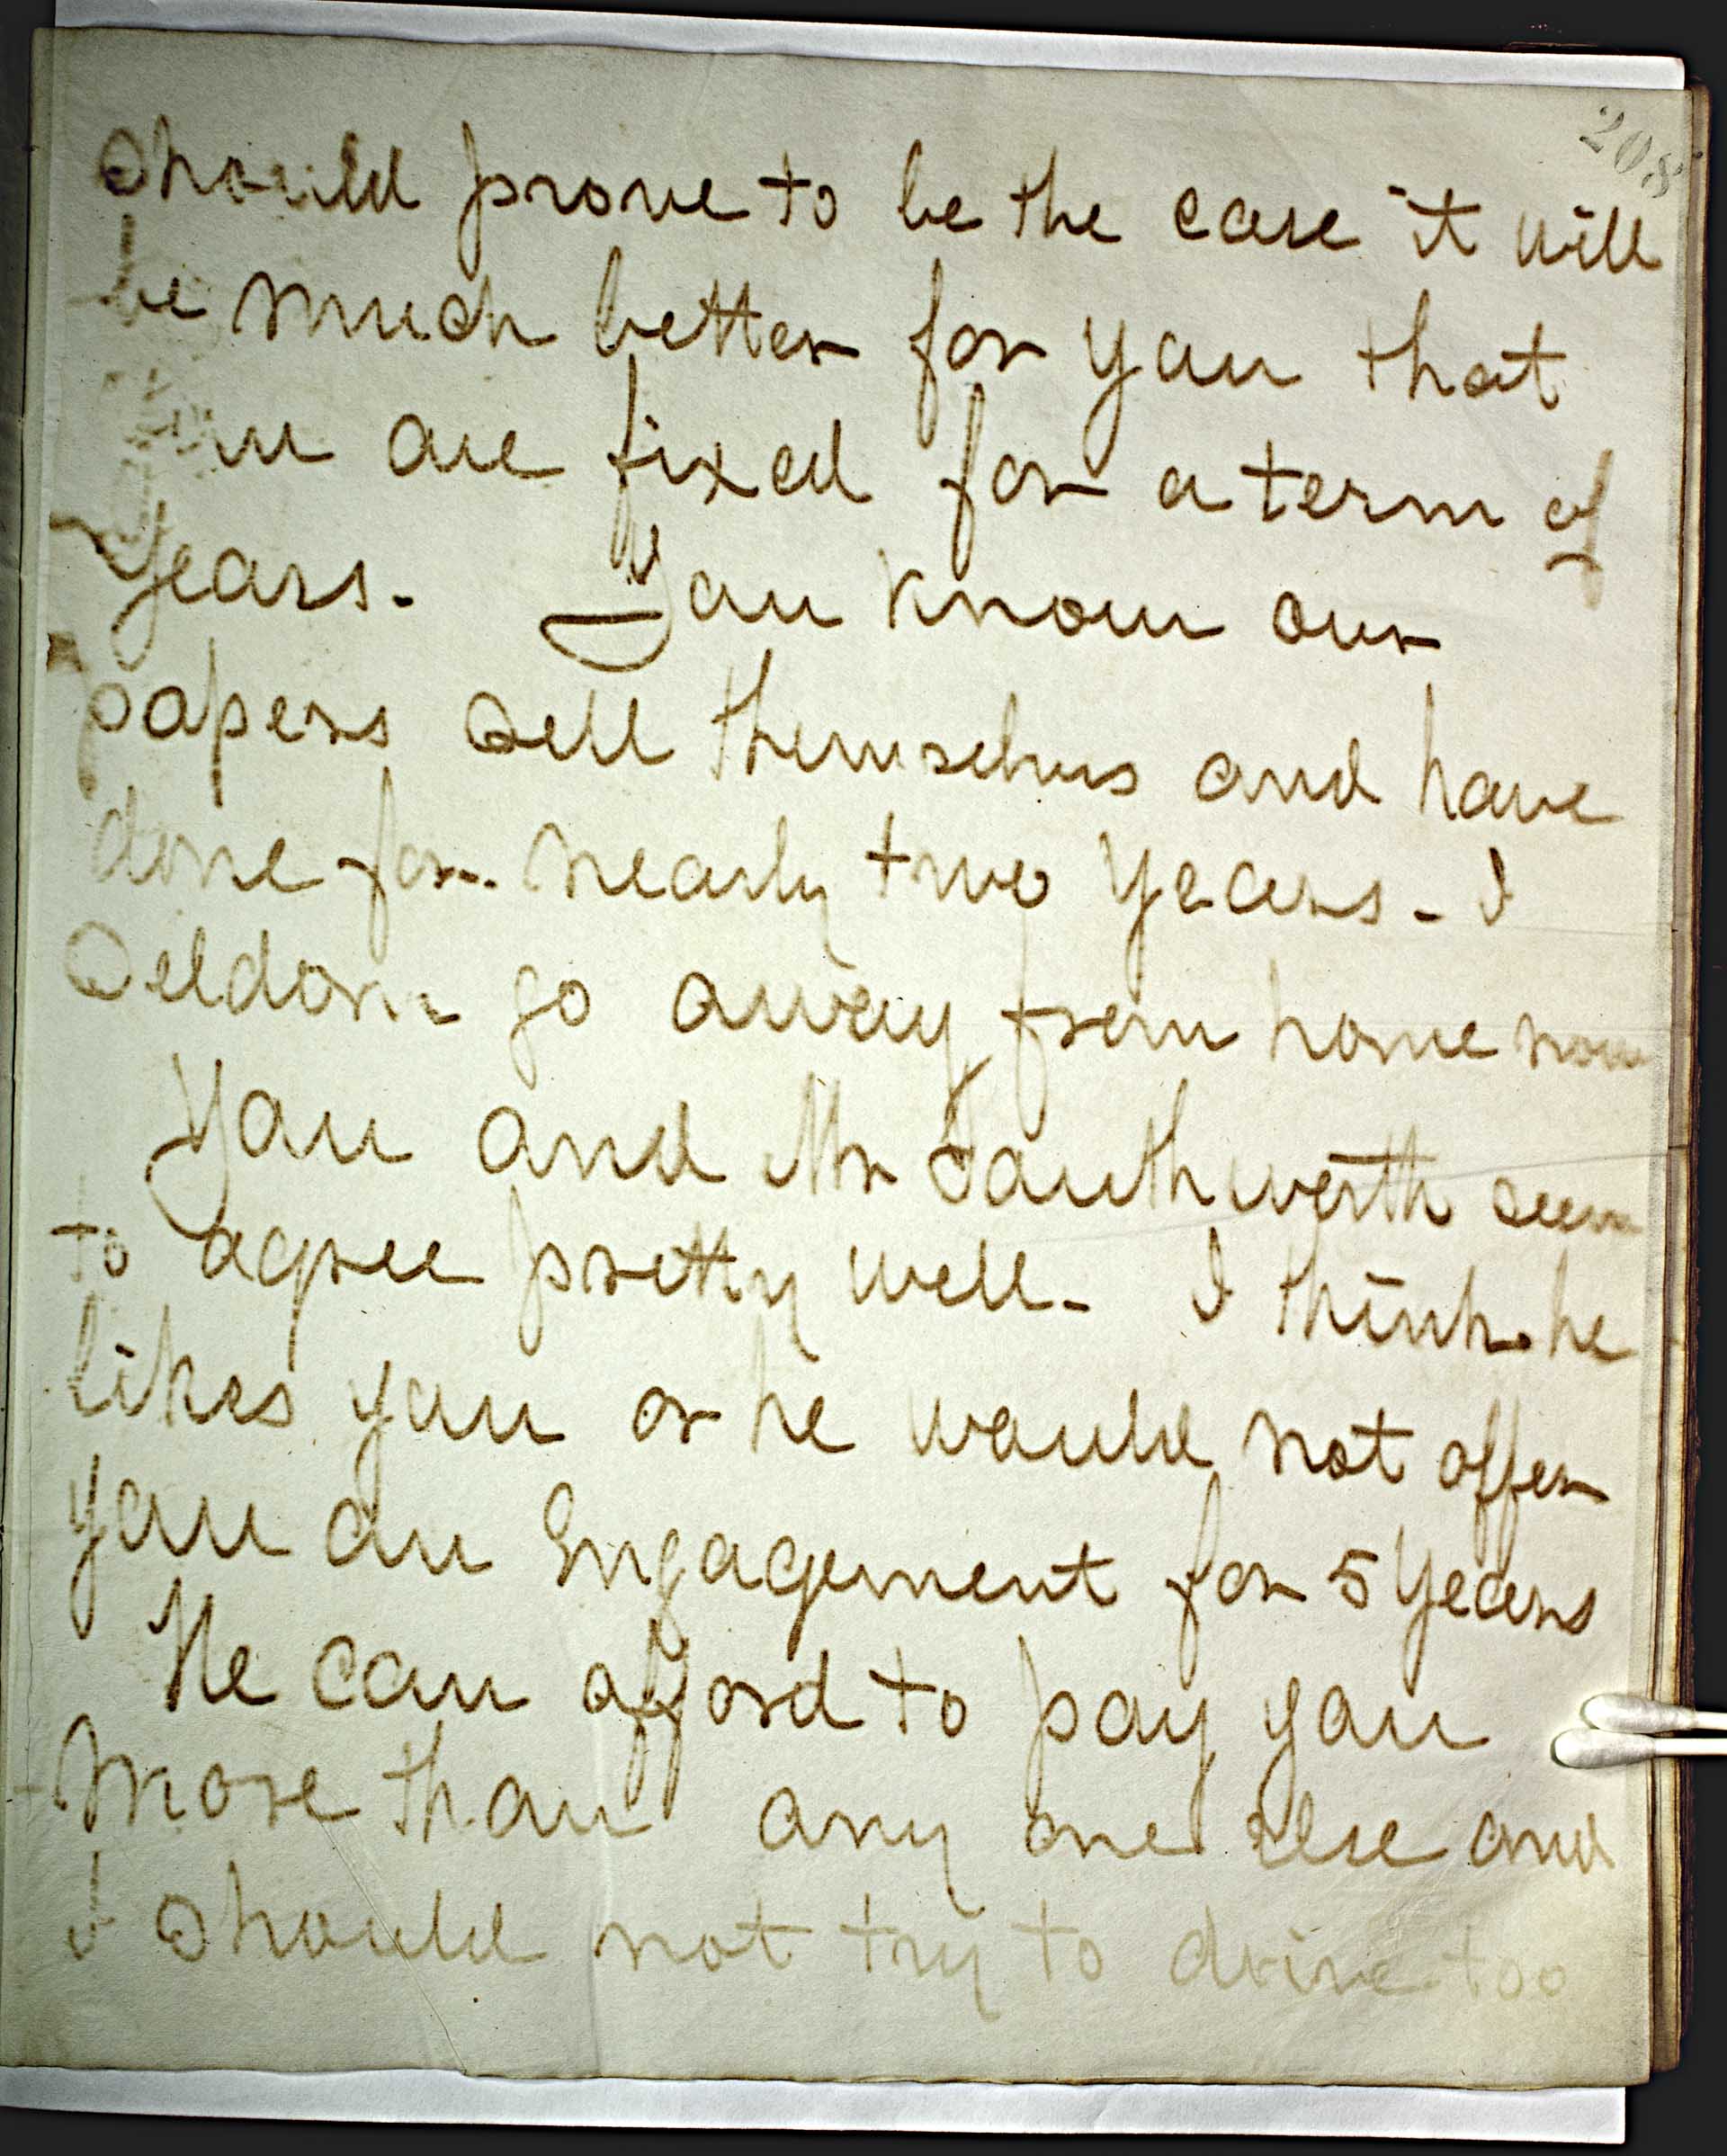 208
Should prove to be the case it will
be much better for you that
you are fixed for a term of
Years. You know our
papers sell themselves and have
done for nearly two years. I
Seldom go away from home now
You and Mr Southworth seem
to agree pretty well. I think he
likes you or he would not offer
you an Engagement for 5 Years
He can afford to pay you
more than any one else and
I should not try to drive too